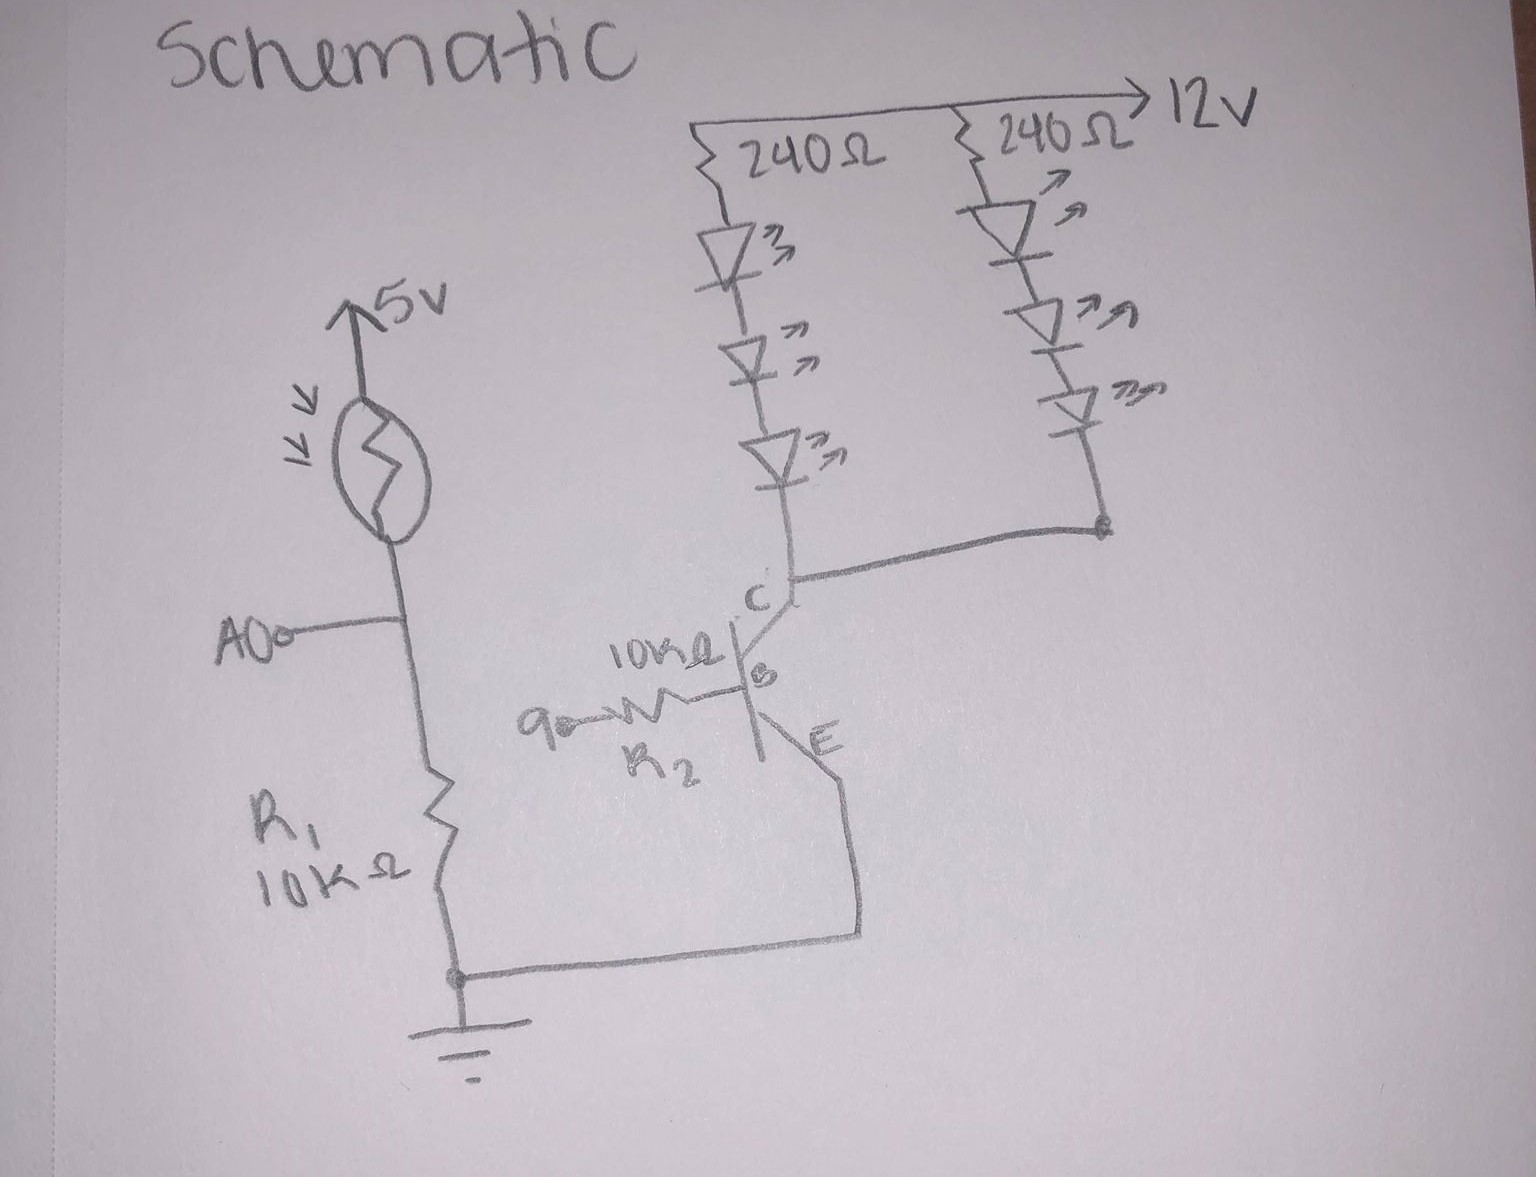 Schematic
12V
240Ω
240Ω
5V
C
A0
10KΩ
B
9
E
R2
R1
10KΩ